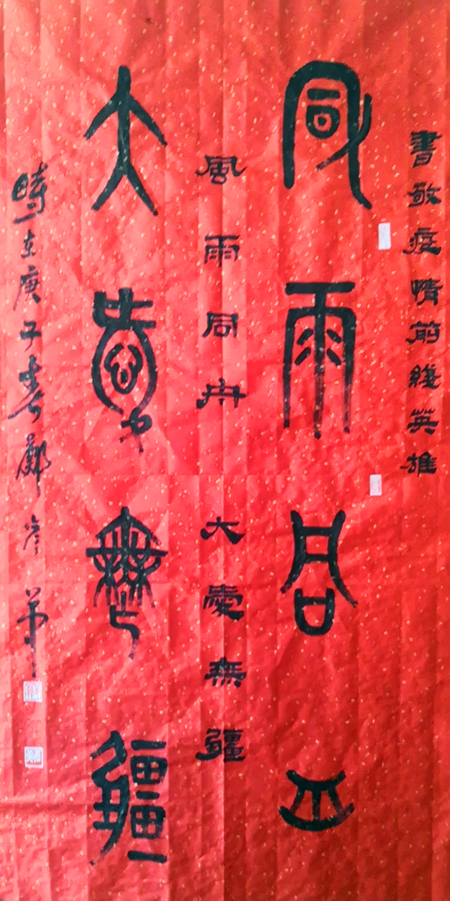 書敬疫情前綫英雄
風雨同舟
風雨同舟 大愛無疆
大愛無疆
時在庚子春